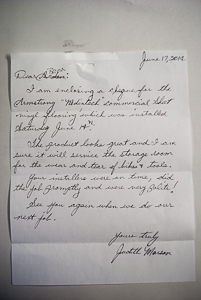 June 17, 2002
Dear
I am enclosing a cheque for the
Armstrong "Medintech" commercial sheet
vinyl flooring which was installed
Saturday June
The product looks great and I am
sure it will service the storage room
for the wear and tear of bikes & tools.
Your installers were on time, did
the job promptly and were very polite!
See you again when we do our
next job.
Yours truly
Judith